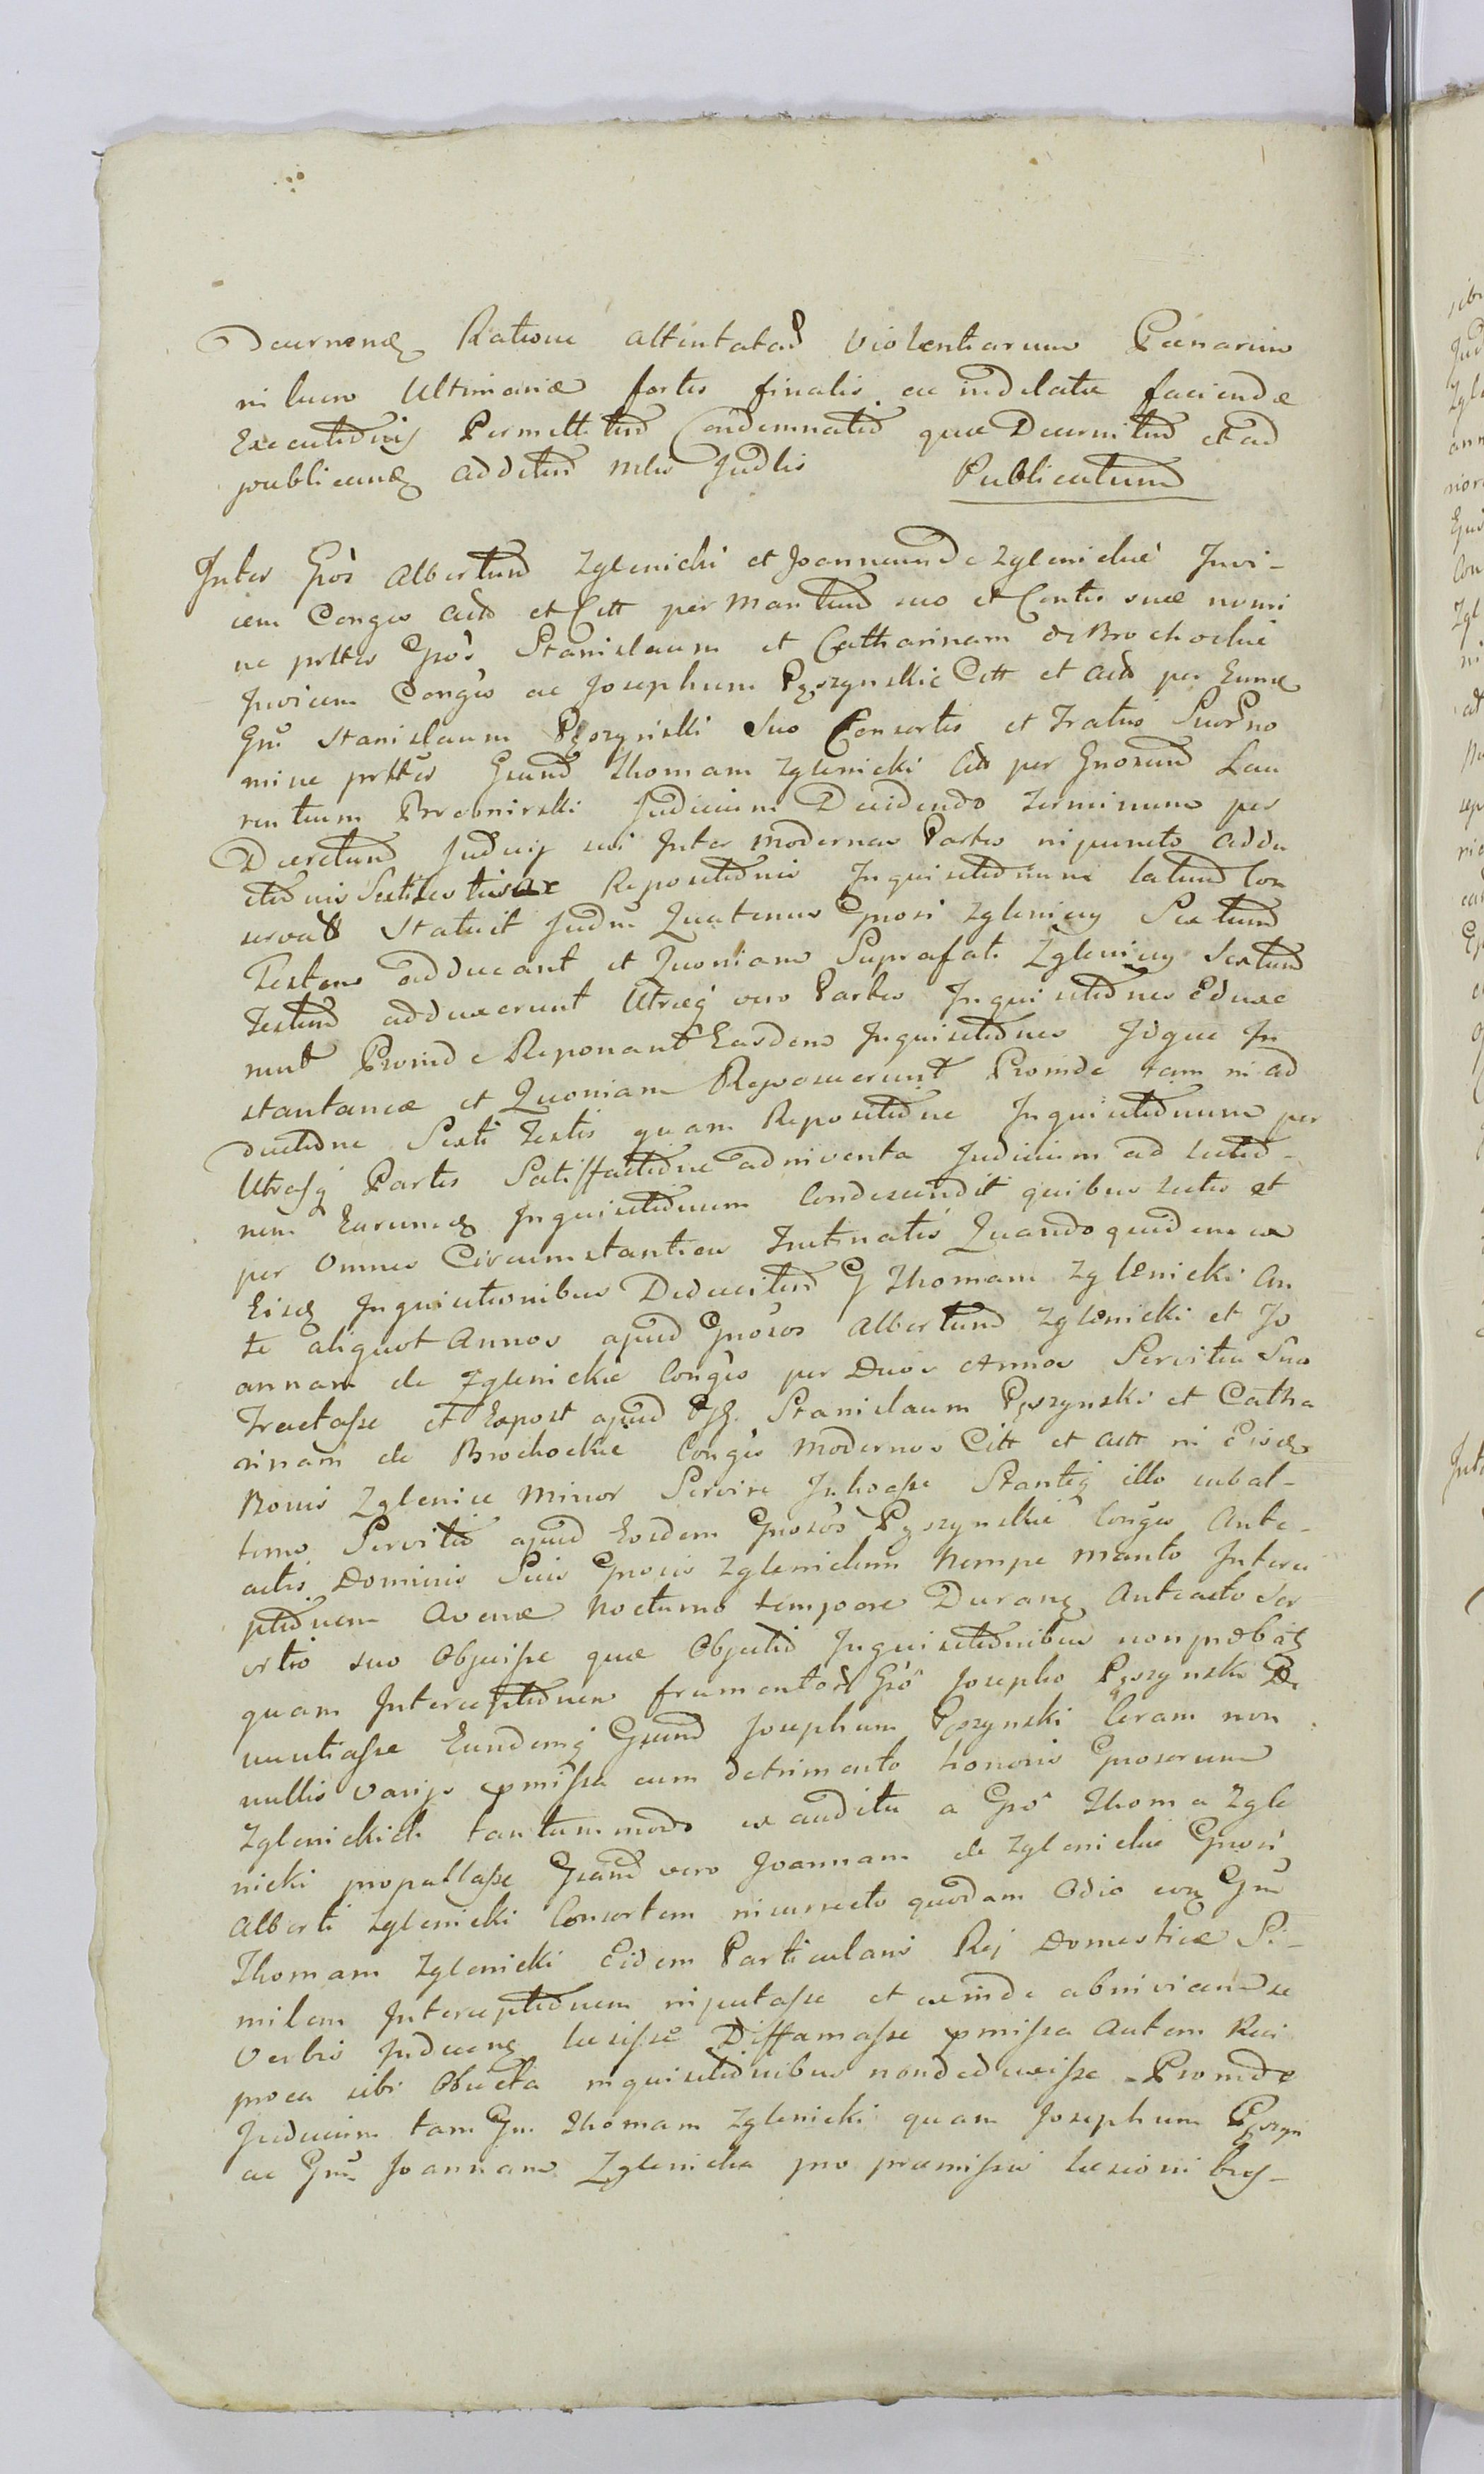 Decernend Ratione attentatar Violentiarum Pœnarum
in luen Ultimariæ sortis finalis ac indilatæ faciendæ
Executionis Permittitur Condemnatio quæ Decernitur et ad
publicand additur mls Judlis Publicatum
Inter Gsos Albertum Zglenicki et Joannam de Zglenickie Invi-
cem Conges Acto et Citt per Maritum suo et Contis suæ nomi
ne prttes Gsos Stanislaum et Catharinam de Brochockie
Invicem Conges ac Josephum Pęszynskie Citt et Acto per Eund
Gsm Stanislaum Pęszynski Suo Consortis et Fratris Suor no
mine prttes Gsum Thomam Zglenicki Citt per Gnosum Lau
rentium Brebnirski Judicium Decidendo Terminum per
Decretum Judicij sui Inter Modernas Partes in puncto Addu
ctionis Sexti Testis ac Repositionis Inquisitionum latum Con
servat Statuit Judm Quatenus Gnosi Zglenicy Sextum
Testem adducant et Quoniam Suprafati Zglenicy Sextum
Testem adduxerunt Utræq vero Partes Inquisitiones Eduxe
runt Proinde Reponant Easdem Inquisitiones Idque In
stantanee et Quoniam Reposuerunt Proinde tam in ad
ductione Sexti Testis quam Repositione Inquisitionum per
Utrasq Partes Satisfactione adinventa Judicium ad Lectio-
nem Earumd Inquisitionum Condescendit quibus Lectis et
per Omnes Circumstantias Trutinatis Quandoquidem ex
Eisd Inquisitionibus Deducitur G Thomam Zglenicki An
te aliquot Annos apud Gnosos Albertum Zglenicki et Jo
annam de Zglenickie Conges per Duos Annos Servitia Sua
Tractasse et Expost apud Stanislaum Pęszynski et Catha
rinam de Brochockie Conges Modernos Citt et Actt in Eisd
Bonis Zglenice Minor Servire Inhoasse Stanteq illo subal-
terno Servitio apud Eosdem Gnosos Pęszynskie Conges Ante-
actis Dominis Suis Gnosis Zglenickim Nempe Marito Interce
ptionem Avenæ Nocturno tempore Durand Anteacto Ser
vitio suo Objecisse quæ Objectio Inquisitionibus non probat
quam Interceptionem frumentor Gso Josepho Pęszynski De
nuntiasse Eundemq Gsum Josephum Pęszynski Coram non
nullis Varijs pmissa cum detrimento honoris Gnosorum
Zglenickich tantummodo ex auditu a Gso Thoma Zgle
nicki propallasse Gsam vero Joannam de Zglenickie Gnosi
Alberti Zglenicki Consortem in currecto quodam Odio erg Gsm
Thomam Zglenicki Eidem Particularis Rej Domesticæ Si-
milem Interceptionem inputasse et exinde ab invicem se
Verbis Inducend læsisse Diffamasse pmissa Autem Reci
proca sibi Objecta inquisitionibus non deduxisse Proinde
Judicium tam Gsm Thomam Zglenicki quam Josephum Pęszyn
ac Gsm Joannam Zglenicka pro præmissis læsionibus-